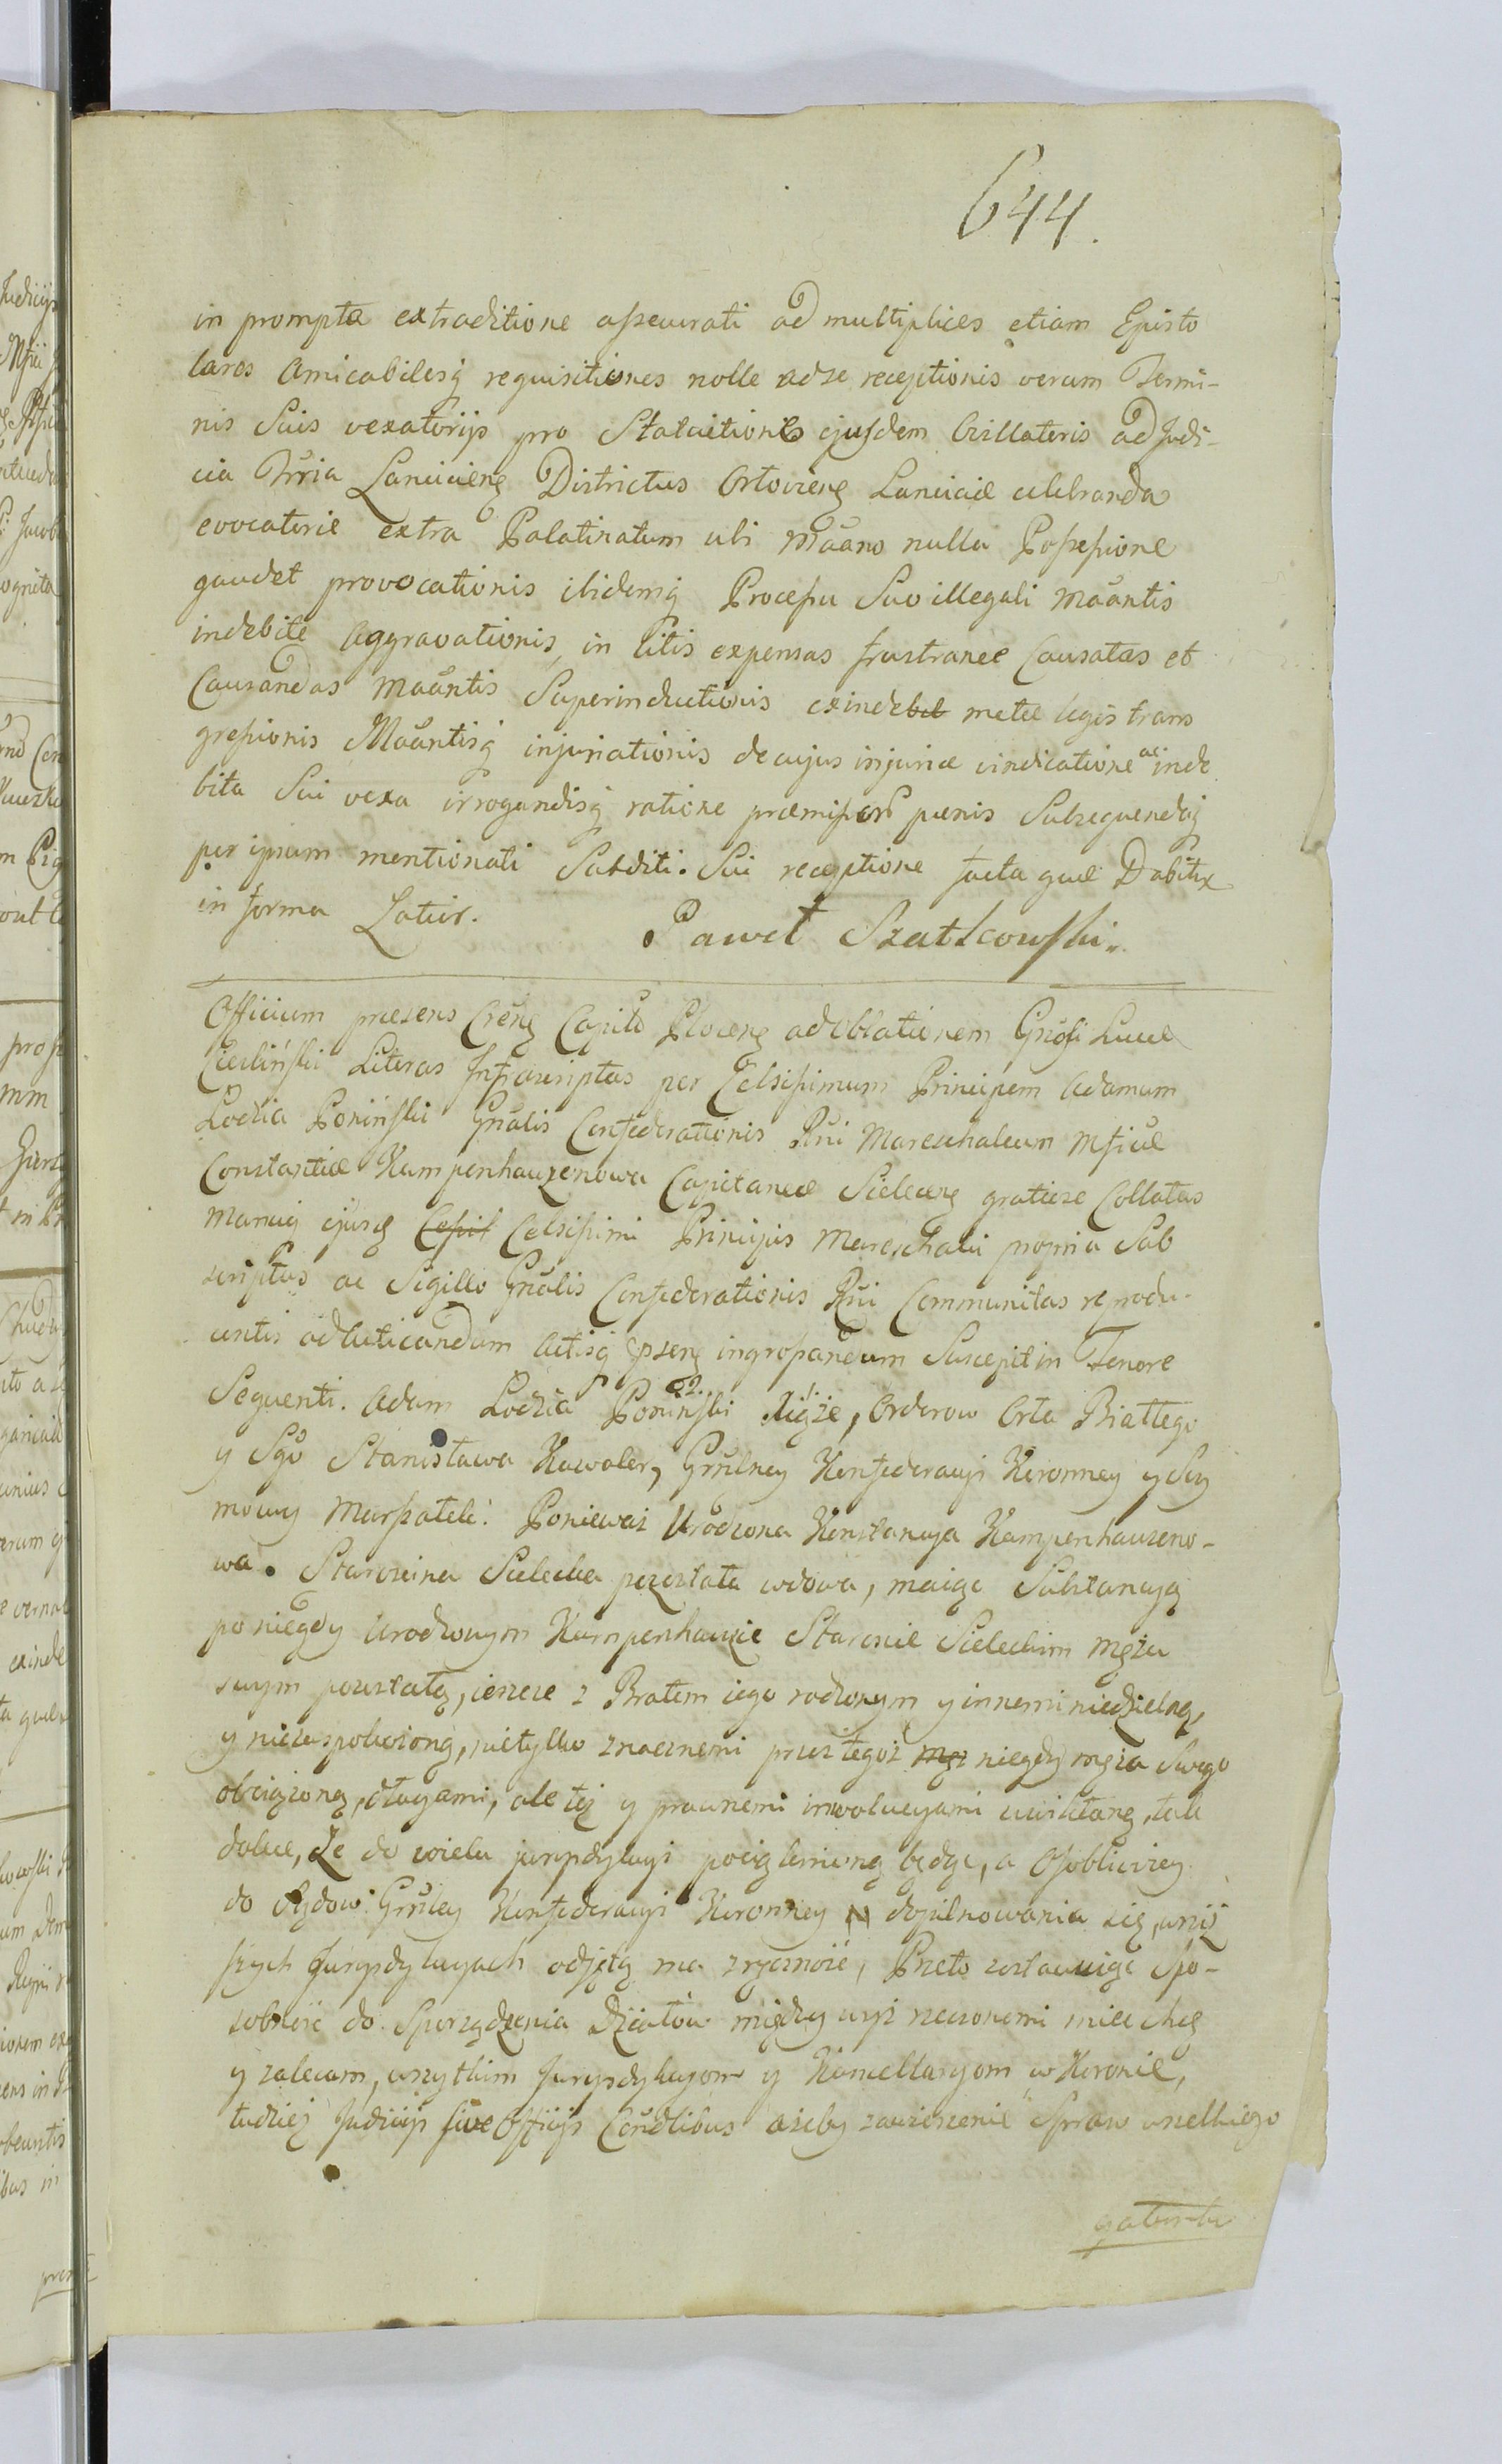 644.
in prompta extraditione assecurati ad multiplices etiam Episto
lares Amicabilesq requisitiones nolle ad se receptionis verum Termi-
nis Suis vexatorijs pro Statuitione ejusdem Oillateris ad Judi-
cia Trria Lanciciens Districtus Orloviens Lanciciæ celebranda
evocatoriæ extra Palatinatum ubi Mäans nulla Possessione
gaudet provocationis ibidemq Processu Suo illegali Mäantis
indebite Aggravationis, in litis expensas frustraneæ Causatas et
Causandas Mäantis Superinductionis exinde metæ legis trans
gressionis Mäantisq injuriationis de cujus injuriæ vindicatione ac inde
bita Sui vexa irrogandisq ratione præmissor pænis Subsequendisq
per ipsum mentionati Subditi. Sui receptione facta quæ Dabitr
in forma Latior. Paweł Szatkowski
Officium præsens Crens Capitle Plocens ad Oblationem Grosi Lucæ
Cieslinski Literas Infrascriptas per Celsissimum Principem Adamum
Lodzia Poninski Gnalis Confederationis Rni Mareschalcum Mficæ
Constantiæ Kampenhauzenowa Capitaneæ Sielecens gratiose Collatas
Manuq ejusd Cessis Celsissimi Principis Mareschalci propria Sub
scriptas ac Sigillo Gnalis Confederationis Rni Communitas reprodu-
centis ad Auticandum Actisq psens ingrossandum Suscepit in Tenore
Sequenti. Adam Lodzia Poninski Xiąże, Orderow Orła Białłego
y Sgo Stanisława Kawaler, Grulney Konfederacyi Koronney y Sey
mowy Marszałek. Ponieważ Urodzona Konstancya Kampenhauzeno-
wa. Starościna Sielecka pozostała wdowa, maiąc Substancyą
po niegdy Urodzonym Kampenhauzie Staroście Sieleckim mężu
swym pozostałą, ieszcze z Bratem iego rodzonym y innemi niedzielną,
y nieuspokoioną, nietylko znacznemi przez tegoż męż niegdy męża Swego
obciążoną, długami, ale też y prawnemi inwolucyami uwikłaną, tak
dalece, Ze do wielu jurysdykcyi pociągnioną będąc, a Osobliwiey
do Sądow Grulney Konfederacyi Koronney N dopilnowania się, w niż
szych Jurysdykcyach odjętą ma zręczność, Przeto zostawuiąc Spo-
sobność do Sporządzenia Działow między wyż rzeczonemi mieć chcę
y zalecam, wszytkim Jurysdykcyom y Kancellaryom w Koronie,
tudzież Judicijs sive Officijs Cendlibus ażeby zawieszenie Spraw wszelkiego
gatunku